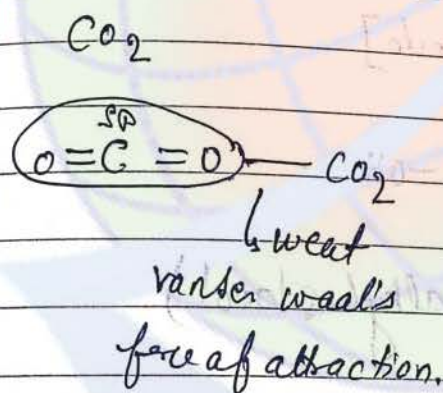 CO2
sp
O=C=O — CO2
↳ weat
vander waal's
force of attraction.